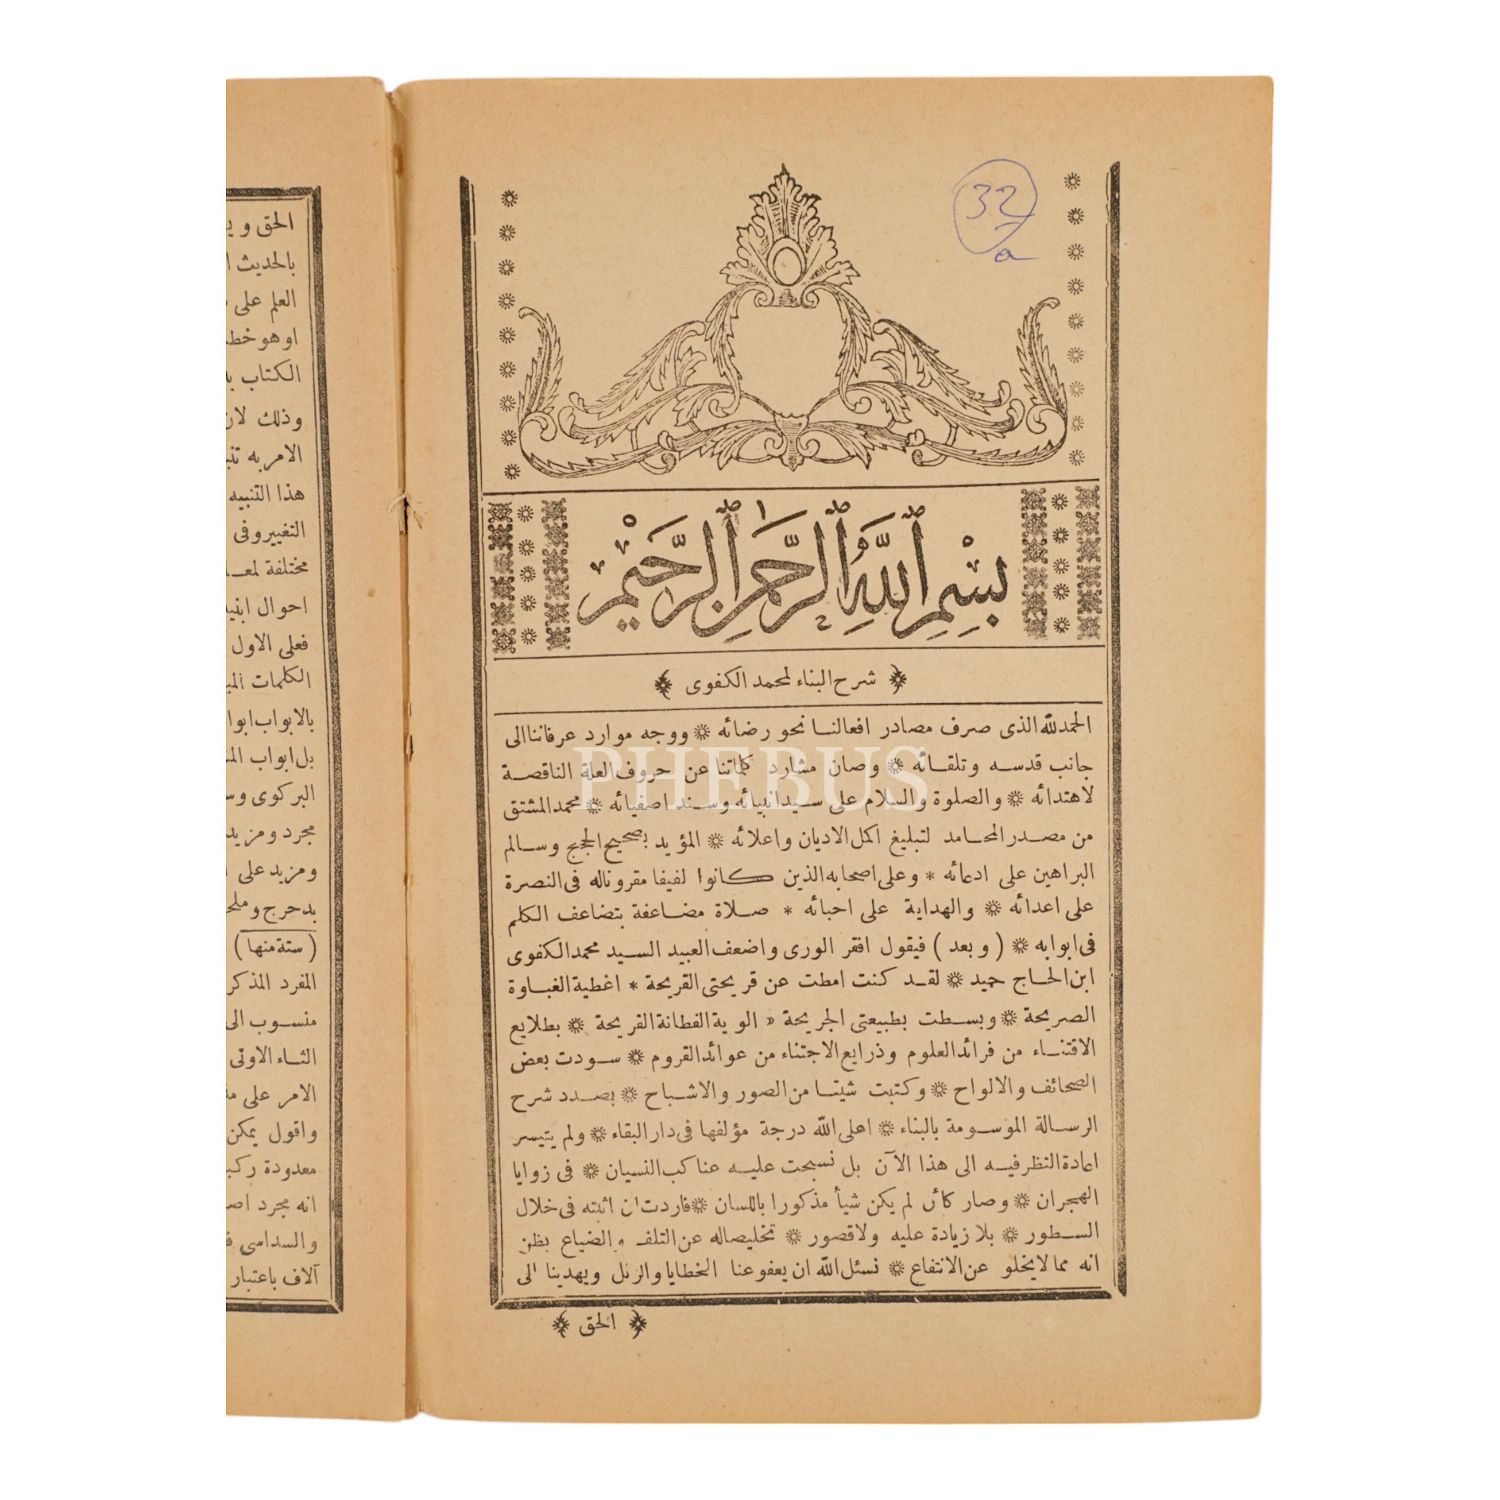 32
a
بِسْمِ اللَّهِ الرَّحْمَنِ الرَّحِيمِ
شرح البناء لمحمد الكفوى
الحمد لله الذى صرف مصادر افعالنا نحو رضائه * ووجه موارد عرفاننا الى
جانب قدسه وتلقائه * وصان مشارد كلماتنا عن حروف العلة الناقصة
لاهتدائه * والصلوة والسلام على سيد انبيائه وسند اصفيائه * محمد المشتق
من مصدر المحامد لتبليغ اكمل الاديان واعلائه * المؤيد بصحيح الحجج وسالم
البراهين على ادعائه * وعلى اصحابه الذين كانوا لفيفا مقرونا له فى النصرة
على اعدائه * والهداية على احبائه * صلاة مضاعفة بتضاعف الكلم
فى ابوابه * ( وبعد ) فيقول افقر الورى واضعف العبيد السيد محمد الكفوى
ابن الحاج حميد * لقد كنت امطت عن قريحتى القريحة * اغطية الغباوة
الصريحة * وبسطت بطبيعتى الجريحة * الوية الفطانة القريحة * بطلايع
الاقتناء من فرائد العلوم وذرايع الاجتناء من عوائد القروم * سودت بعض
الصحائف والالواح * وكتبت شيئا من الصور والاشباح * بصدد شرح
الرسالة الموسومة بالبناء * اعلى الله درجة مؤلفها فى دار البقاء * ولم يتيسر
اعادة النظر فيه الى هذا الآن بل نسجت عليه عناكب النسيان * فى زوايا
الهجران * وصار كأن لم يكن شيأ مذكورا باللسان * فاردت ان اثبته فى خلال
السطور * بلا زيادة عليه ولا قصور * تخليصا له عن التلف والضياع بظن
انه مما لا يخلو عن الانتفاع * نسئل الله ان يعفو عنا الخطايا والزلل ويهدينا الى
الحق
الحق وي
بالحديث ا
العلم على
او هو خط
الكتاب ب
وذلك لان
الامر به تن
هذا التنبيه
التغيير وفى
مختلفة لمعـ
احوال ابنيـ
فعلى الاول
الكلمات الم
بالابواب ابوا
بل ابواب الم
البركوى وس
مجرد ومزيد
ومزيد على
بدحرج وملح
( ستة منها )
المفرد المذكر
منسوب الى
الثاء الاوتى
الامر على م
واقول يمكن
معدودة ركبـ
انه مجرد اصـ
والسداسى فـ
آلاف باعتبار
PHEBUS